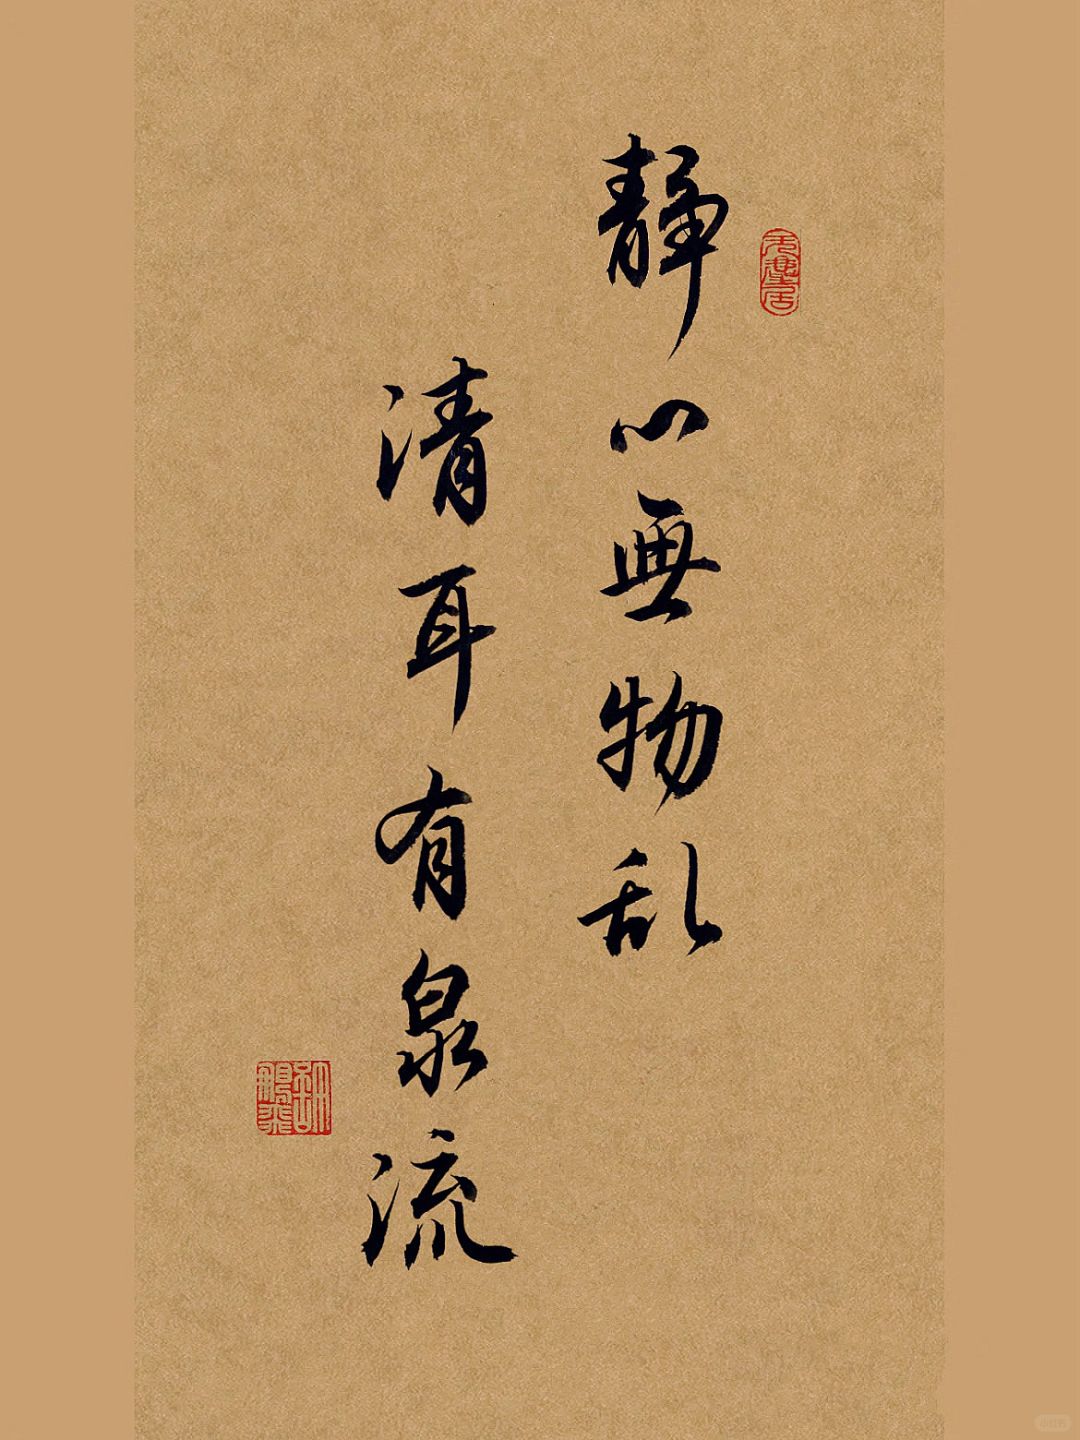 静心無物乱
清耳有泉流